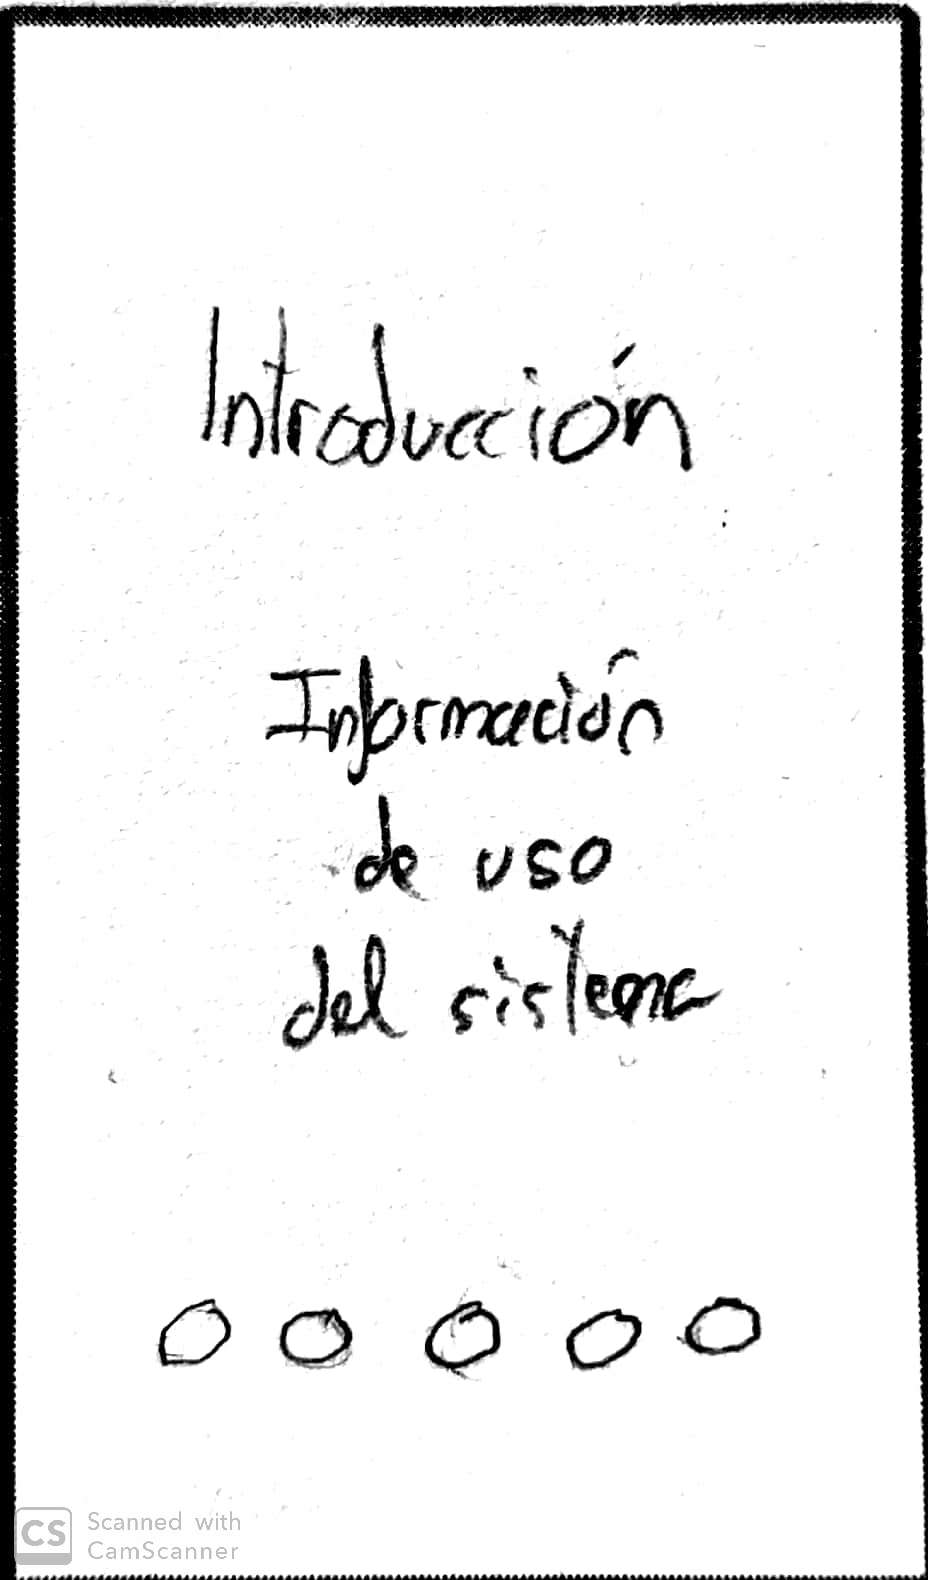 Introducción
Información
de uso
del sistema
CS Scanned with
CamScanner